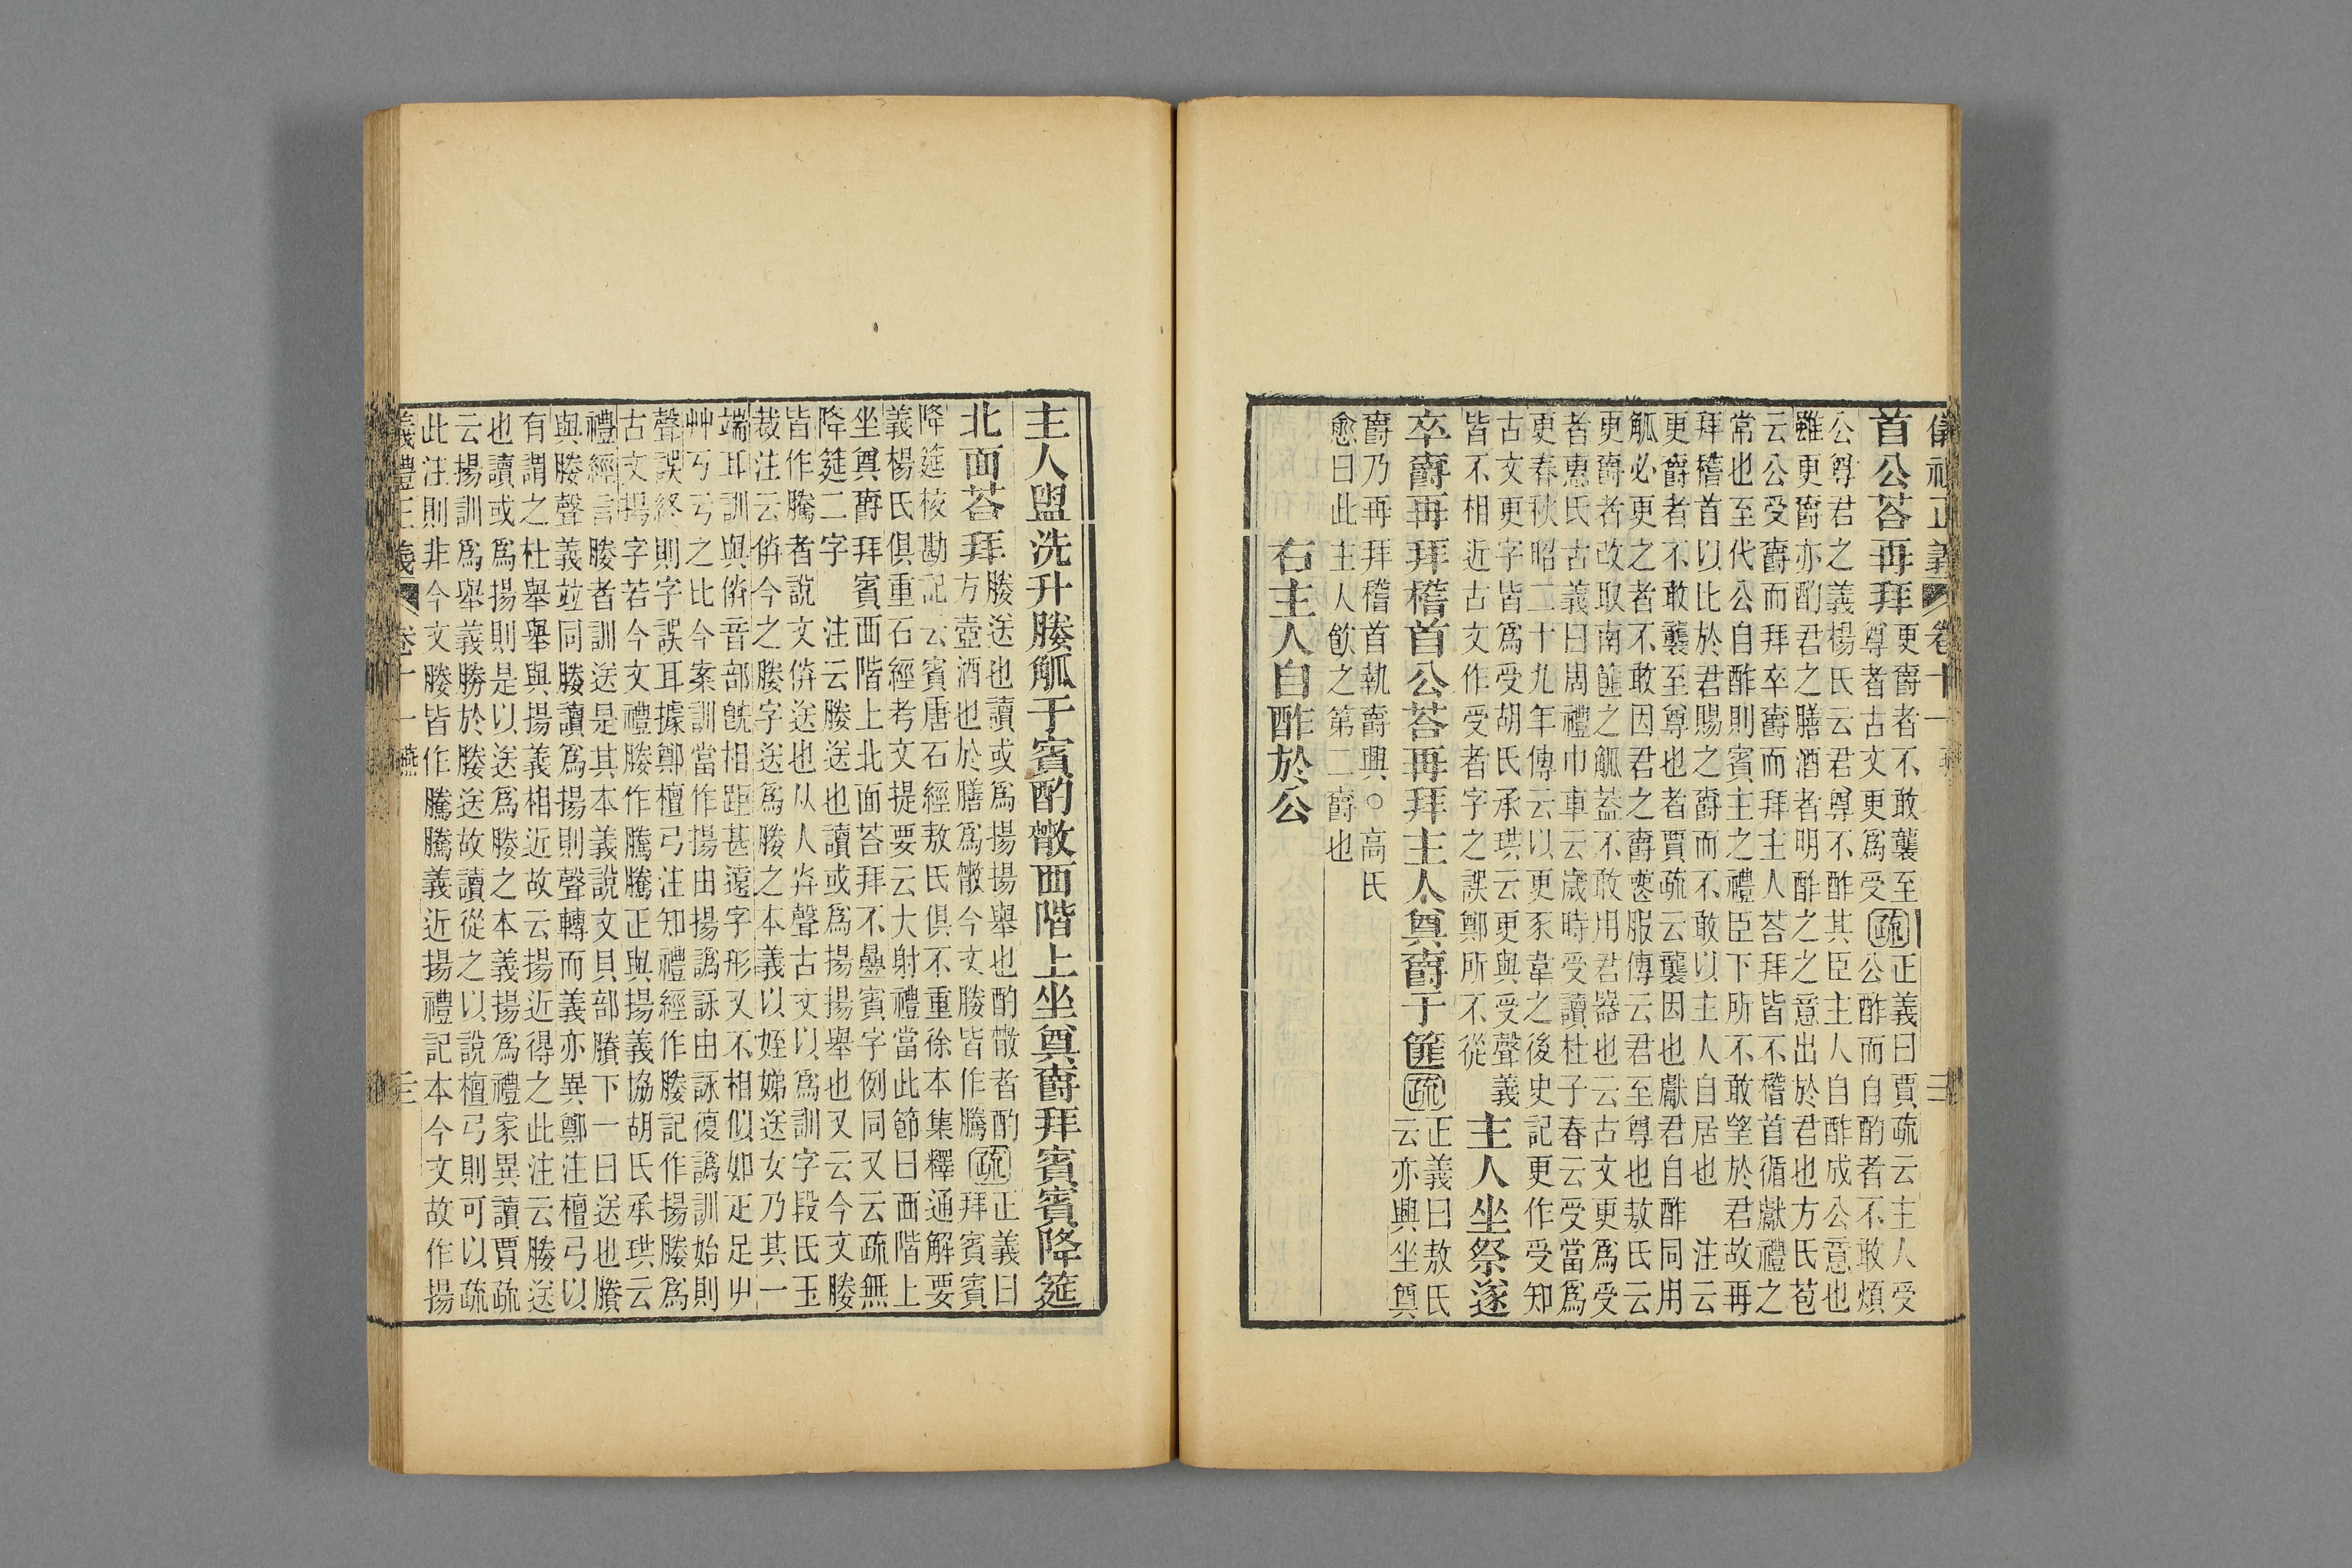 儀禮正義 卷十一 燕 三
首公荅再拜
更爵者不敢襲至
尊者古文更爲受
疏
正義曰賈疏云主人受
公酢而自酌者不敢煩
公尊君之義楊氏云君尊不酢其臣主人自酢成公意也
雖更爵亦酌君之膳酒者明酢之之意出於君也方氏苞
云公受爵而拜卒爵而拜主人荅拜皆不稽首循獻禮之
常也至代公自酢則賓主之禮臣下所不敢望於君故再
拜稽首以比於君賜之爵而不敢以主人自居也 注云
更爵者不敢襲至尊也者賈疏云襲因也獻君自酢同用
觚必更之者不敢因君之爵褻服傳云君至尊也敖氏云
更爵者改取南篚之觚蓋不敢用君器也云古文更爲受
者惠氏古義曰周禮巾車云歲時受讀杜子春云受當爲
更春秋昭二十九年傳云以更豕韋之後史記更作受知
古文更字皆爲受胡氏承珙云更與受聲義
皆不相近古文作受者字之誤鄭所不從
主人坐祭遂
卒爵再拜稽首公荅再拜主人奠爵于篚
疏
正義曰敖氏
云亦興坐奠
爵乃再拜稽首執爵興○高氏
愈曰此主人飮之第二爵也
右主人自酢於公
主人盥洗升媵觚于賓酌散西階上坐奠爵拜賓賓降筵
北面荅拜
媵送也讀或爲揚揚舉也酌散者酌
方壺酒也於膳爲散今文媵皆作騰
疏
正義曰
拜賓賓
降筵校勘記云賓唐石經敖氏俱不重徐本集釋通解要
義楊氏俱重石經考文提要云大射禮當此節曰西階上
坐奠爵拜賓西階上北面荅拜不疊賓字例同又云疏無
降筵二字 注云媵送也讀或爲揚揚舉也又云今文媵
皆作騰者說文倂送也从人灷聲古文以爲訓字段氏玉
裁注云倂今之媵字送爲媵之本義以姪娣送女乃其一
端耳訓與倂音部旣相距甚遠字形又不相似如疋足屮
艸丂亏之比今案訓當作揚由揚譌詠由詠復譌訓始則
聲誤終則字誤耳據鄭檀弓注知禮經作媵記作揚媵爲
古文揚字若今文禮媵作騰騰正與揚義協胡氏承珙云
禮經言媵者訓送是其本義說文貝部賸下一曰送也賸
與媵聲義竝同媵讀爲揚則聲轉而義亦異鄭注檀弓以
有謂之杜舉舉與揚義相近故云揚近得之此注云媵送
也讀或爲揚則是以送爲媵之本義揚爲禮家異讀賈疏
云揚訓爲舉義勝於媵送故讀從之以說檀弓則可以疏
此注則非今文媵皆作騰騰義近揚禮記本今文故作揚
義禮正義 卷十一 燕 三